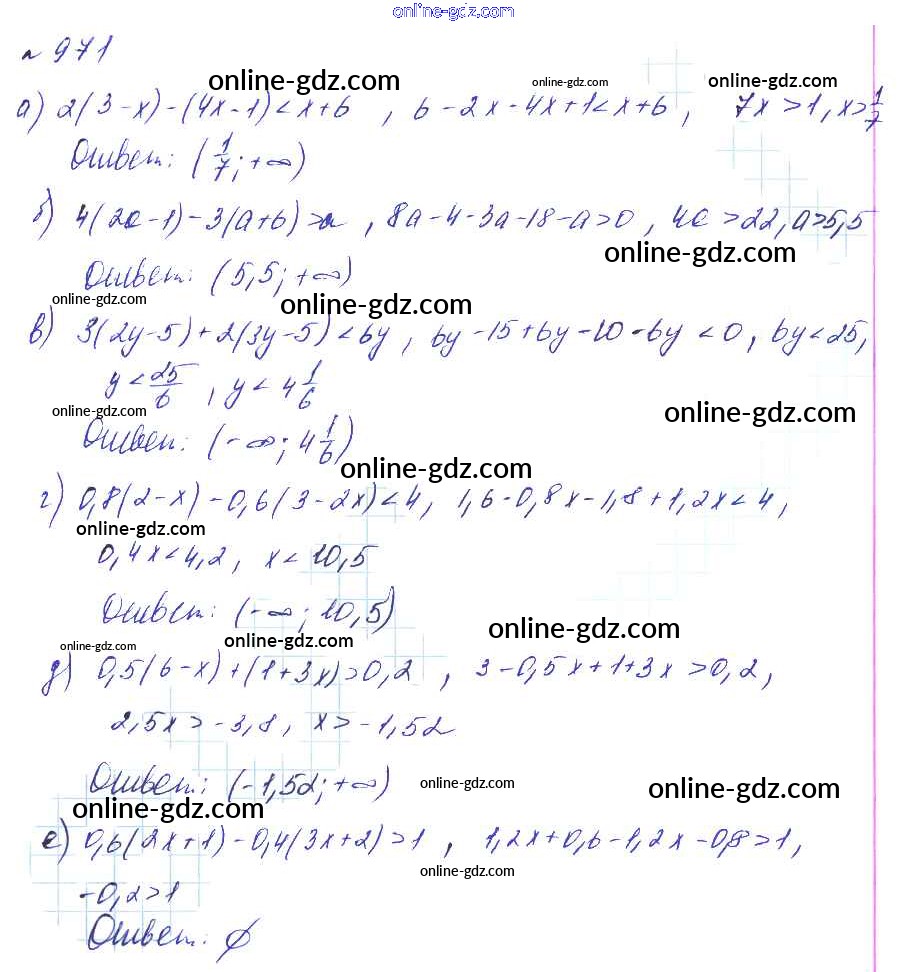 online-gdz.com
№ 971
online-gdz.com online-gdz.com online-gdz.com
а) 2(3-x)-(4x-1)<x+6, 6-2x-4x+1<x+6, 7x>1, x>1/7
Ответ: (1/7; +∞)
б) 4(2a-1)-3(a+6)>a, 8a-4-3a-18-a>0, 4a>22, a>5,5
online-gdz.com
Ответ: (5,5; +∞)
online-gdz.com online-gdz.com
в) 3(2y-5)+2(3y-5)<6y, 6y-15+6y-10-6y<0, 6y<25,
y<25/6, y<4 1/6
online-gdz.com online-gdz.com
Ответ: (-∞; 4 1/6)
online-gdz.com
г) 0,8(2-x)-0,6(3-2x)<4, 1,6-0,8x-1,8+1,2x<4,
online-gdz.com
0,4x<4,2, x<10,5
Ответ: (-∞; 10,5)
online-gdz.com online-gdz.com online-gdz.com
д) 0,5(6-x)+(1+3x)>0,2, 3-0,5x+1+3x>0,2,
2,5x>-3,8, x>-1,52
Ответ: (-1,52; +∞)
online-gdz.com online-gdz.com
online-gdz.com
е) 0,6(2x+1)-0,4(3x+2)>1, 1,2x+0,6-1,2x-0,8>1,
online-gdz.com
-0,2>1
Ответ: ∅